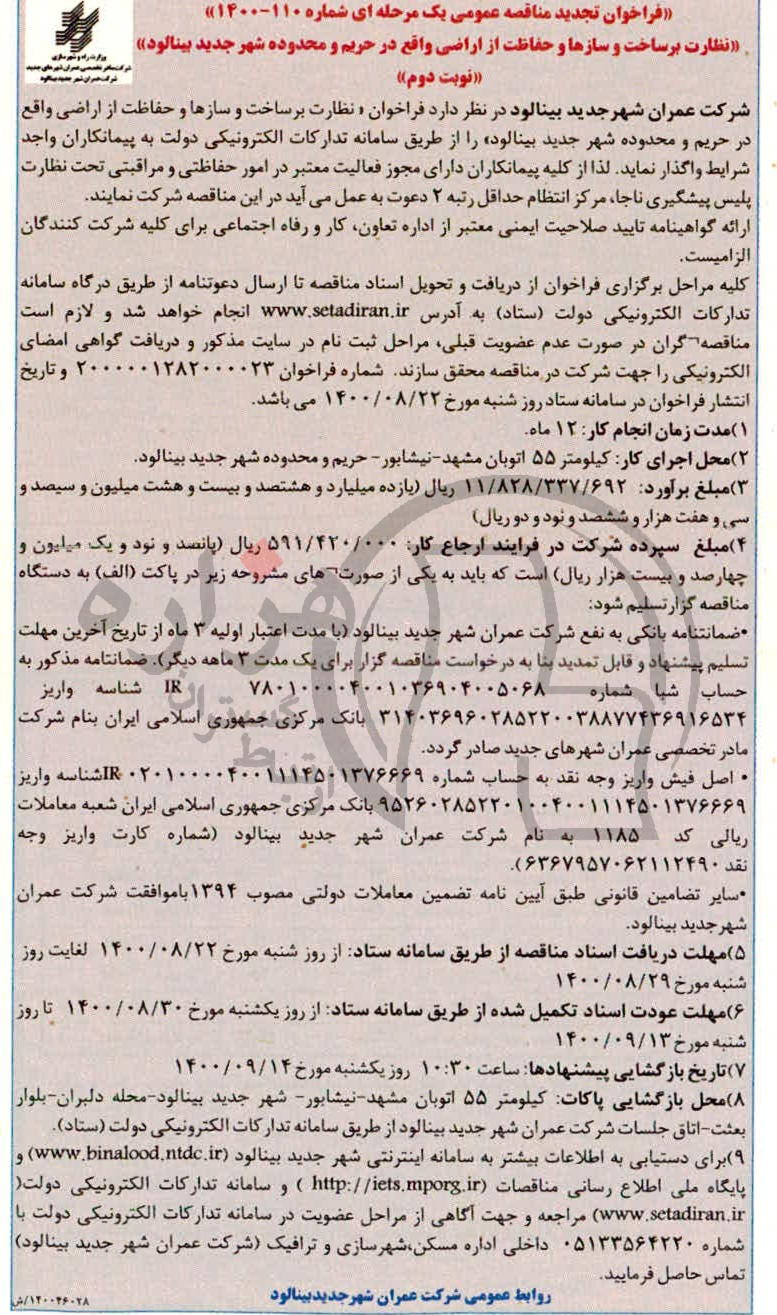 «فراخوان تجدید مناقصه عمومی یک مرحله ای شماره ۱۱۰-۱۴۰۰»
«نظارت برساخت و سازها و حفاظت از اراضی واقع در حریم و محدوده شهر جدید بینالود»
«نوبت دوم»
وزارت راه و شهرسازی
شرکت مادر تخصصی عمران شهرهای جدید
شرکت عمران شهر جدید بینالود
شرکت عمران شهرجدید بینالود در نظر دارد فراخوان « نظارت برساخت و سازها و حفاظت از اراضی واقع
در حریم و محدوده شهر جدید بینالود» را از طریق سامانه تدارکات الکترونیکی دولت به پیمانکاران واجد
شرایط واگذار نماید. لذا از کلیه پیمانکاران دارای مجوز فعالیت معتبر در امور حفاظتی و مراقبتی تحت نظارت
پلیس پیشگیری ناجا، مرکز انتظام حداقل رتبه ۲ دعوت به عمل می آید در این مناقصه شرکت نمایند.
ارائه گواهینامه تایید صلاحیت ایمنی معتبر از اداره تعاون، کار و رفاه اجتماعی برای کلیه شرکت کنندگان
الزامیست.
کلیه مراحل برگزاری فراخوان از دریافت و تحویل اسناد مناقصه تا ارسال دعوتنامه از طریق درگاه سامانه
تدارکات الکترونیکی دولت (ستاد) به آدرس www.setadiran.ir انجام خواهد شد و لازم است
مناقصه¬گران در صورت عدم عضویت قبلی، مراحل ثبت نام در سایت مذکور و دریافت گواهی امضای
الکترونیکی را جهت شرکت در مناقصه محقق سازند. شماره فراخوان ۲۰۰۰۰۰۱۲۸۲۰۰۰۰۲۳ و تاریخ
انتشار فراخوان در سامانه ستاد روز شنبه مورخ ۱۴۰۰/۰۸/۲۲ می باشد.
۱)مدت زمان انجام کار: ۱۲ ماه.
۲)محل اجرای کار: کیلومتر ۵۵ اتوبان مشهد-نیشابور- حریم و محدوده شهر جدید بینالود.
۳)مبلغ برآورد: ۱۱/۸۲۸/۳۳۷/۶۹۲ ریال (یازده میلیارد و هشتصد و بیست و هشت میلیون و سیصد و
سی و هفت هزار و ششصد و نود و دو ریال)
۴)مبلغ سپرده شرکت در فرایند ارجاع کار: ۵۹۱/۴۲۰/۰۰۰ ریال (پانصد و نود و یک میلیون و
چهارصد و بیست هزار ریال) است که باید به یکی از صورت¬های مشروحه زیر در پاکت (الف) به دستگاه
مناقصه گزار تسلیم شود:
•ضمانتنامه بانکی به نفع شرکت عمران شهر جدید بینالود (با مدت اعتبار اولیه ۳ ماه از تاریخ آخرین مهلت
تسلیم پیشنهاد و قابل تمدید بنا به درخواست مناقصه گزار برای یک مدت ۳ ماهه دیگر). ضمانتامه مذکور به
حساب شبا شماره ۷۸۰۱۰۰۰۰۴۰۰۱۰۳۶۹۰۴۰۰۵۰۶۸ IR شناسه واریز
۳۱۴۰۳۶۹۶۰۲۸۵۲۲۰۰۳۸۸۷۷۴۳۶۹۱۶۵۳۴ بانک مرکزی جمهوری اسلامی ایران بنام شرکت
مادر تخصصی عمران شهرهای جدید صادر گردد.
• اصل فیش واریز وجه نقد به حساب شماره IR۰۲۰۱۰۰۰۰۴۰۰۱۱۱۴۵۰۱۳۷۶۶۶۹ شناسه واریز
۹۵۲۶۰۲۸۵۲۲۰۱۰۰۴۰۰۱۱۱۴۵۰۱۳۷۶۶۶۹ بانک مرکزی جمهوری اسلامی ایران شعبه معاملات
ریالی کد ۱۱۸۵ به نام شرکت عمران شهر جدید بینالود (شماره کارت واریز وجه
نقد ۶۳۶۷۹۵۷۰۶۲۱۱۲۴۹۰).
•سایر تضامین قانونی طبق آیین نامه تضمین معاملات دولتی مصوب ۱۳۹۴ باموافقت شرکت عمران
شهرجدید بینالود.
۵)مهلت دریافت اسناد مناقصه از طریق سامانه ستاد: از روز شنبه مورخ ۱۴۰۰/۰۸/۲۲ لغایت روز
شنبه مورخ ۱۴۰۰/۰۸/۲۹
۶)مهلت عودت اسناد تکمیل شده از طریق سامانه ستاد: از روز یکشنبه مورخ ۱۴۰۰/۰۸/۳۰ تا روز
شنبه مورخ ۱۴۰۰/۰۹/۱۳
۷)تاریخ بازگشایی پیشنهادها: ساعت ۱۰:۳۰ روز یکشنبه مورخ ۱۴۰۰/۰۹/۱۴
۸)محل بازگشایی پاکات: کیلومتر ۵۵ اتوبان مشهد-نیشابور- شهر جدید بینالود-محله دلبران-بلوار
بعثت-اتاق جلسات شرکت عمران شهر جدید بینالود از طریق سامانه تدارکات الکترونیکی دولت (ستاد).
۹)برای دستیابی به اطلاعات بیشتر به سامانه اینترنتی شهر جدید بینالود (www.binalood.ntdc.ir) و
پایگاه ملی اطلاع رسانی مناقصات (http://iets.mporg.ir ) و سامانه تدارکات الکترونیکی دولت(
www.setadiran.ir) مراجعه و جهت آگاهی از مراحل عضویت در سامانه تدارکات الکترونیکی دولت با
شماره ۰۵۱۳۳۵۶۴۲۲۰ داخلی اداره مسکن،شهرسازی و ترافیک (شرکت عمران شهر جدید بینالود)
تماس حاصل فرمایید.
روابط عمومی شرکت عمران شهرجدیدبینالود
۱۴۰۰۴۶۰۲۸/ش
هزاره